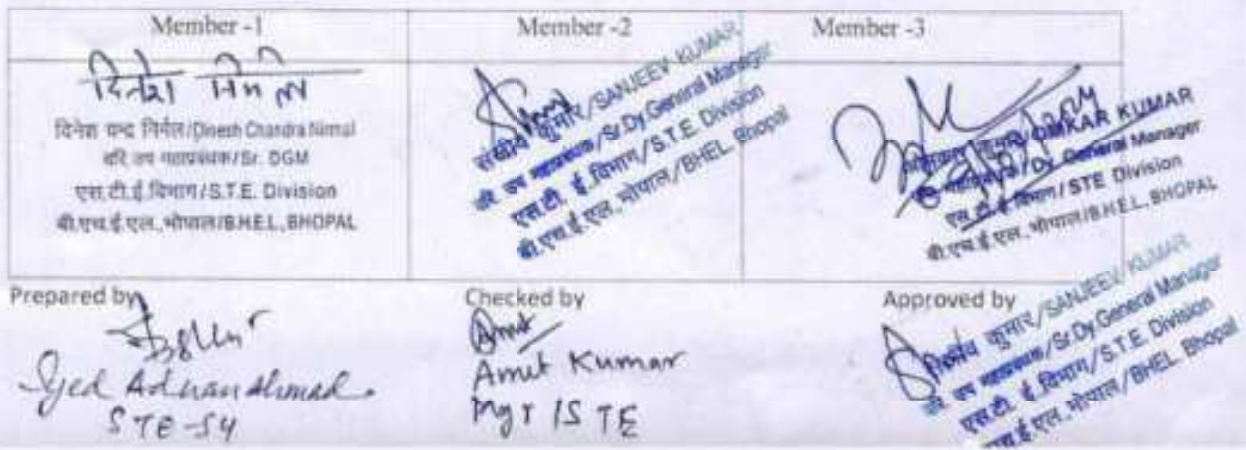 Member -1
Member -2
Member -3
दिनेश निर्मल
दिनेश चन्द्र निर्मल/Dinesh Chandra Nirmal
वरि उप महाप्रबंधक/Sr. DGM
एस.टी.ई.विभाग/S.T.E. Division
बी.एच.ई.एल.,भोपाल/B.H.E.L., BHOPAL
संजीव कुमार/SANJEEV KUMAR
वरि उप महाप्रबंधक/Sr.Dy.General Manager
एस.टी. ई.विभाग/S.T.E. Division
बी.एच.ई.एल.,भोपाल/BHEL, Bhopal
OMKAR KUMAR
Dy. General Manager
एस.टी.ई.विभाग/STE Division
बी.एच.ई.एल., भोपाल/B.H.E.L., BHOPAL
Prepared by
Checked by
Approved by
Syed Adnan Ahmad
STE-SY
Amit
Amit Kumar
Mgr/STE
संजीव कुमार/SANJEEV KUMAR
वरि उप महाप्रबंधक/Sr.Dy.General Manager
एस.टी. ई.विभाग/S.T.E. Division
बी.एच.ई.एल.,भोपाल/BHEL, Bhopal